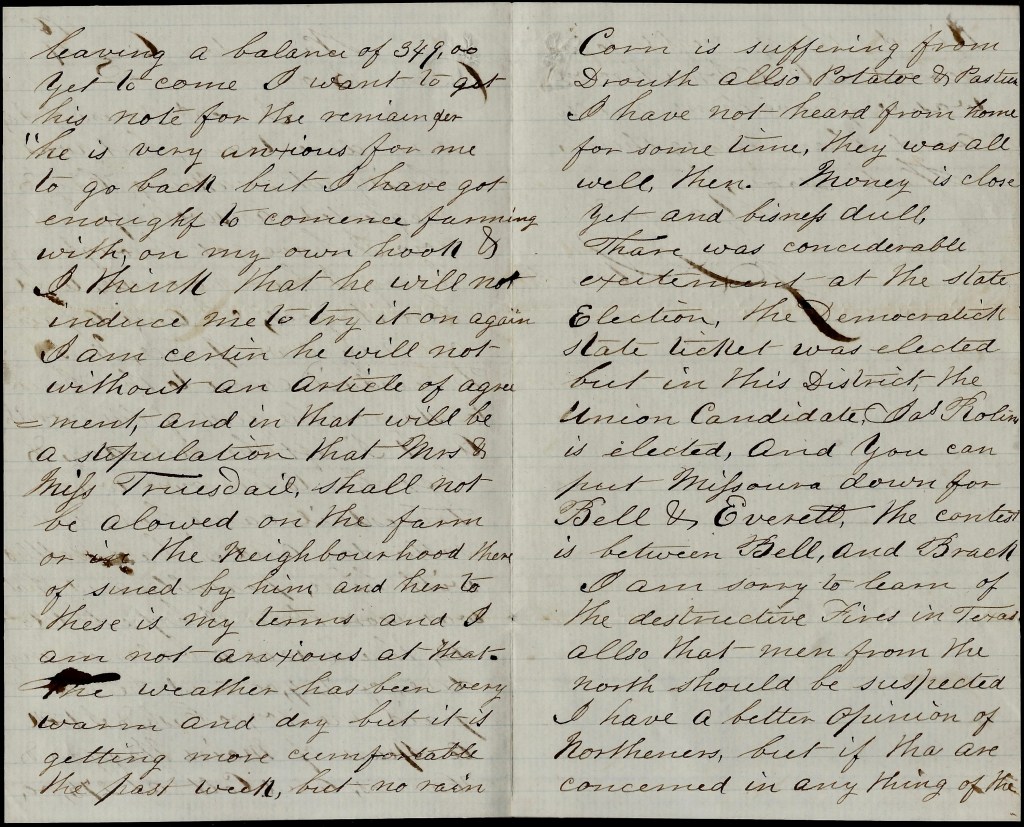 leaving a balance of 349,00
Yet to come I want to get
his note for the remainder
"he is very anxious for me
to go back but I have got
enoughf to comence farming
with, on my own hook &
I think that he will not
induce me to try it on again
I am certin he will not
without an article of agree
=ment, and in that will be
a stipulation that Mrs &
Miss Truesdail, shall not
be alowed on the farm
or in the Neighbourhood there
of sined by him and her to
these is my terms and I
am not anxious at that.
The weather has been very
warm and dry but it is
getting more cumfortable
the past week, but no rain
Corn is suffering from
Drouth allso Potatoe & Pasture
I have not heard from home
for some time, they was all
well, then. Money is close
Yet and bisness dull,
Thare was conciderable
excitement at the state
Election, the Democratick
state ticket was elected
but in this District, the
Union Candidate, Jas Rolins
is elected, And You can
put Missoura down for
Bell & Everett, the contest
is between Bell, and Brack
I am sorry to learn of
the destructive Fires in Texas
allso that men from the
north should be suspected
I have a better opinion of
Northeners, but if tha are
concerned in any thing of the